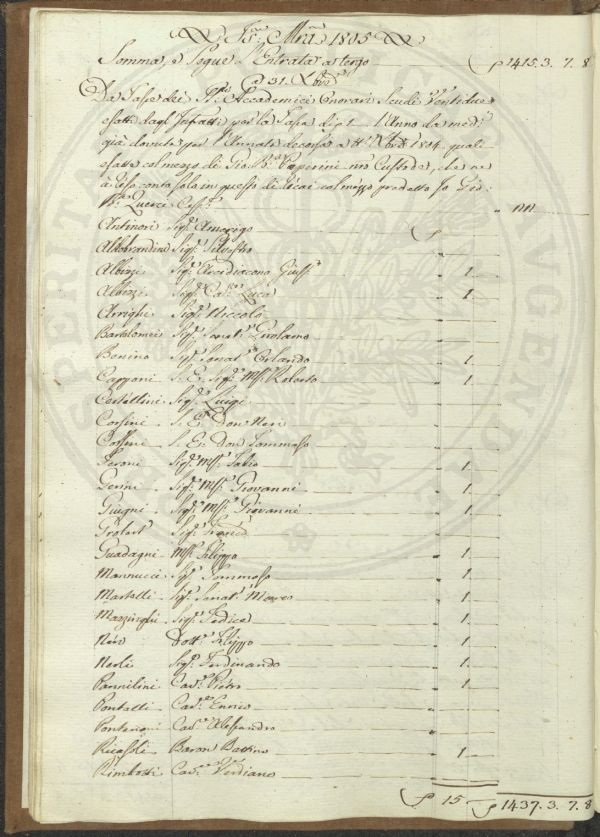 1805
Somma, e Segue l'Entrata a tergo ƒ 1415.3.7.8
a 31. Xbre
Da Tasse dei SS.ri Accademici Onorari Scudi Ventidue
esatti dagl' Infratti per la Tassa di ƒ 1 l'Anno da med.i
già dovuta per l'Annata decorsa a tt.o Xbre 1804 quali
esatti col mezzo di Gio. Ba. Paperini nro Custode, che ne
predetto
Querci Cass.e
Antinori Sig.r Amerigo ƒ
Aldobrandini Sig.r Silvestro
Albizzi Sig.r Arcidiacono 1
Albizzi Sig.r Ca.r Luca 1
Arrighi Sig.r Niccolò
Bartolomei Sig.r Senat.r Girolamo
Benino Sig.r Senat.r Orlando 1
Capponi S. E. Sig.r M.se Roberto 1
Castellini Sig.r Luigi
Corsini S. E. Don Neri
Corsini S. E. Don Tommaso
Feroni Sig.r M.se Fabio 1
Gerini Sig.r M.se Giovanni 1
Giugni Sig.r M.se Giovanni 1
Sig.r
Guadagni M.se Filippo 1
Mannucci Sig.r Tommaso 1
Martelli Sig.r Senat.r Marco 1
Mazzinghi Sig.r 1
Neri Dott.r Filippo 1
Nerli Sig.r Ferdinando 1
Pannilini Cav.r Pietro 1
Pontelli Cav.r Enrico
Cav.r Alessandro
Ricasoli Baron Bettino 1
Rimbotti Cav.r Verdiano
ƒ 15 ƒ 1437.3.7.8